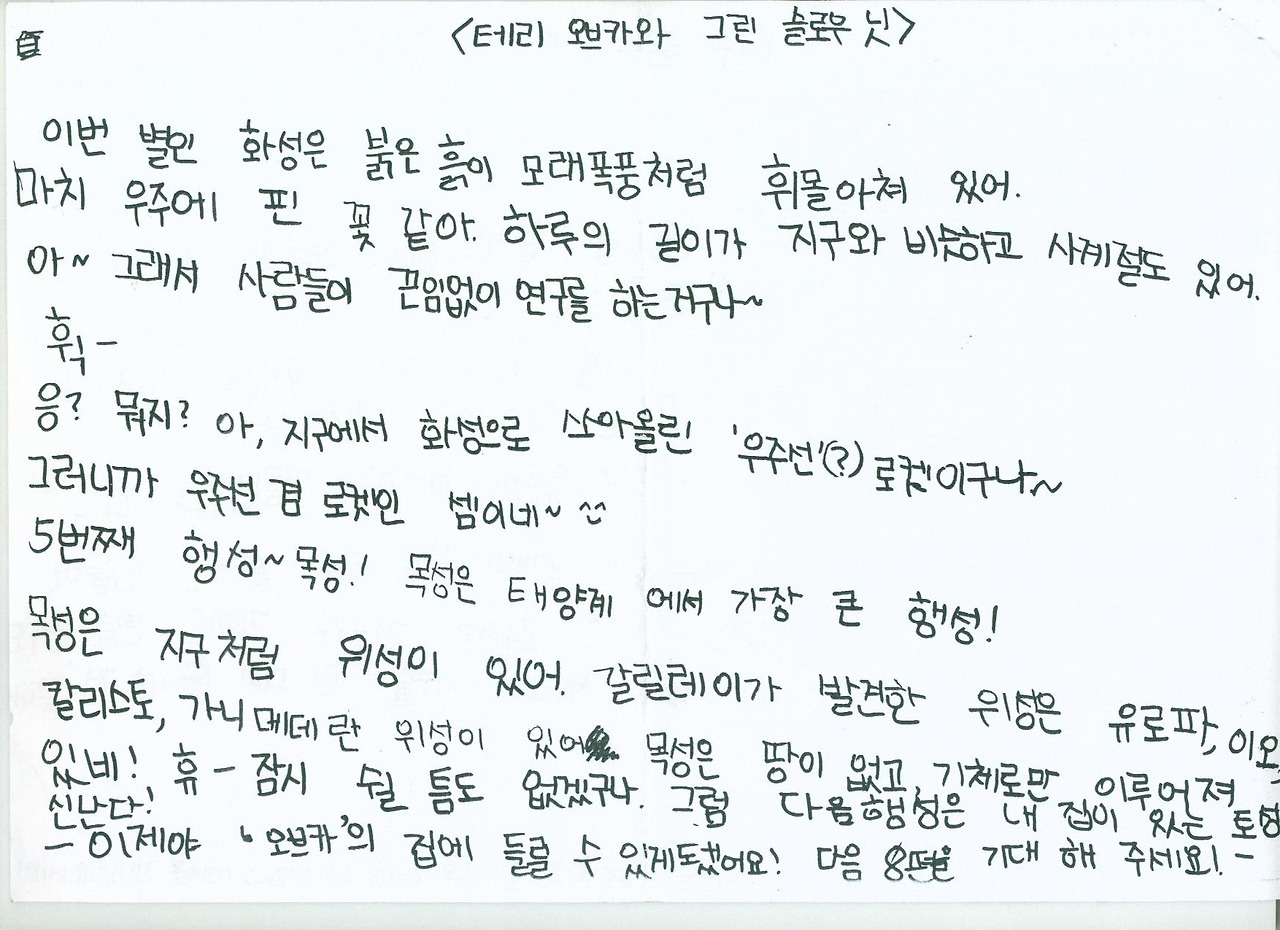 <테리 오브카와 그린 슬로우 닛>
이번 별인 화성은 붉은 흙이 모래폭풍처럼 휘몰아쳐 있어.
마치 우주에 핀 꽃 같아. 하루의 길이가 지구와 비슷하고 사계절도 있어.
아~ 그래서 사람들이 끈임없이 연구를 하는거구나~
휙-
응? 뭐지? 아, 지구에서 화성으로 쏘아올린 '우주선'(?) 로켓이구나~
그러니까 우주선 겸 로켓인 셈이네~ ^^
5번째 행성~ 목성! 목성은 태양계 에서 가장 큰 행성!
목성은 지구처럼 위성이 있어. 갈릴레이가 발견한 위성은 유로파, 이오,
칼리스토, 가니메데란 위성이 있어 목성은 땅이 없고, 기체로만 이루어져
있네! 휴- 잠시 쉴 틈도 없겠구나. 그럼 다음행성은 내 집이 있는 토성
신난다!
- 이제야 '오브카'의 집에 들를 수 있게됐어요! 다음 8편을 기대 해 주세요! -